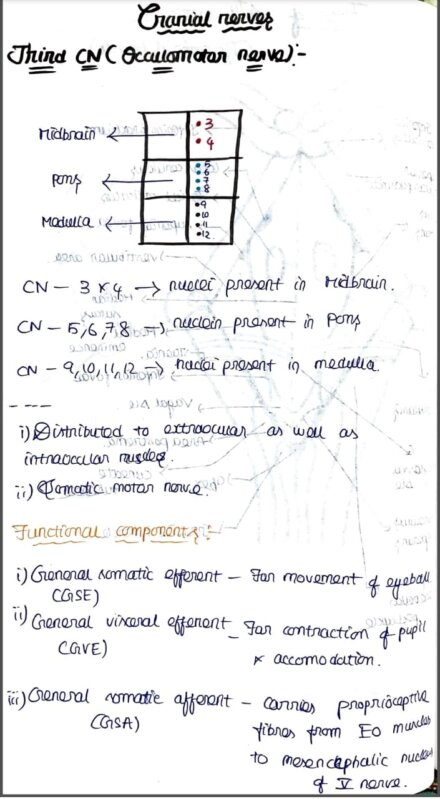 Cranial nerves
Third CN (Occulomotor nerve):-
Midbrain
Pons
Medulla
3
4
5
6
7
8
9
10
11
12
CN - 3 & 4 → nuclei present in Midbrain.
CN - 5,6,7,8 → nuclein present in Pons
CN - 9,10,11,12 → nuclei present in medulla.
----
i) Distributed to extraocular as well as
intraocular muscles.
ii) Somatic motor nerve.
Functional components:-
i) General somatic efferent - For movement of eyeball
(GSE)
ii) General visceral efferent - For contraction of pupil
(GVE) & accomodation.
iii) General somatic afferent - carries proprioceptive
(GSA) fibres from EO muscles
to mesencephalic nucleus
of V nerve.